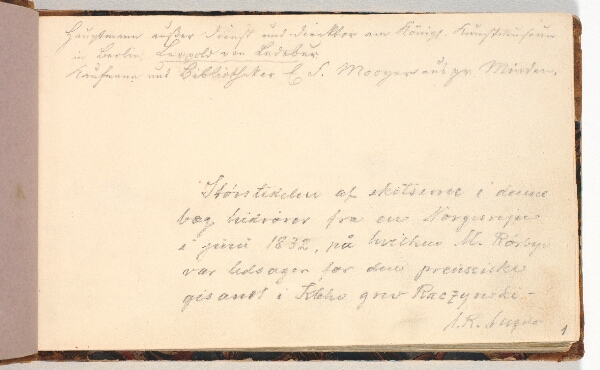 Hauptmann außer Dienst und Direktor am Königl. Kunstmuseum
in Berlin. Leopold von Ledebur
Kaufmann und Bibliotheker E. F. Mooyer aus pr. Minden.
Størstedelen af skitserne i denne
bog hidrører fra en Norgesrejse
i juni 1832, på hvilken M. Rörbye
var ledsager for den preussiske
gesandt i Kbhv grev Raczynski –
1